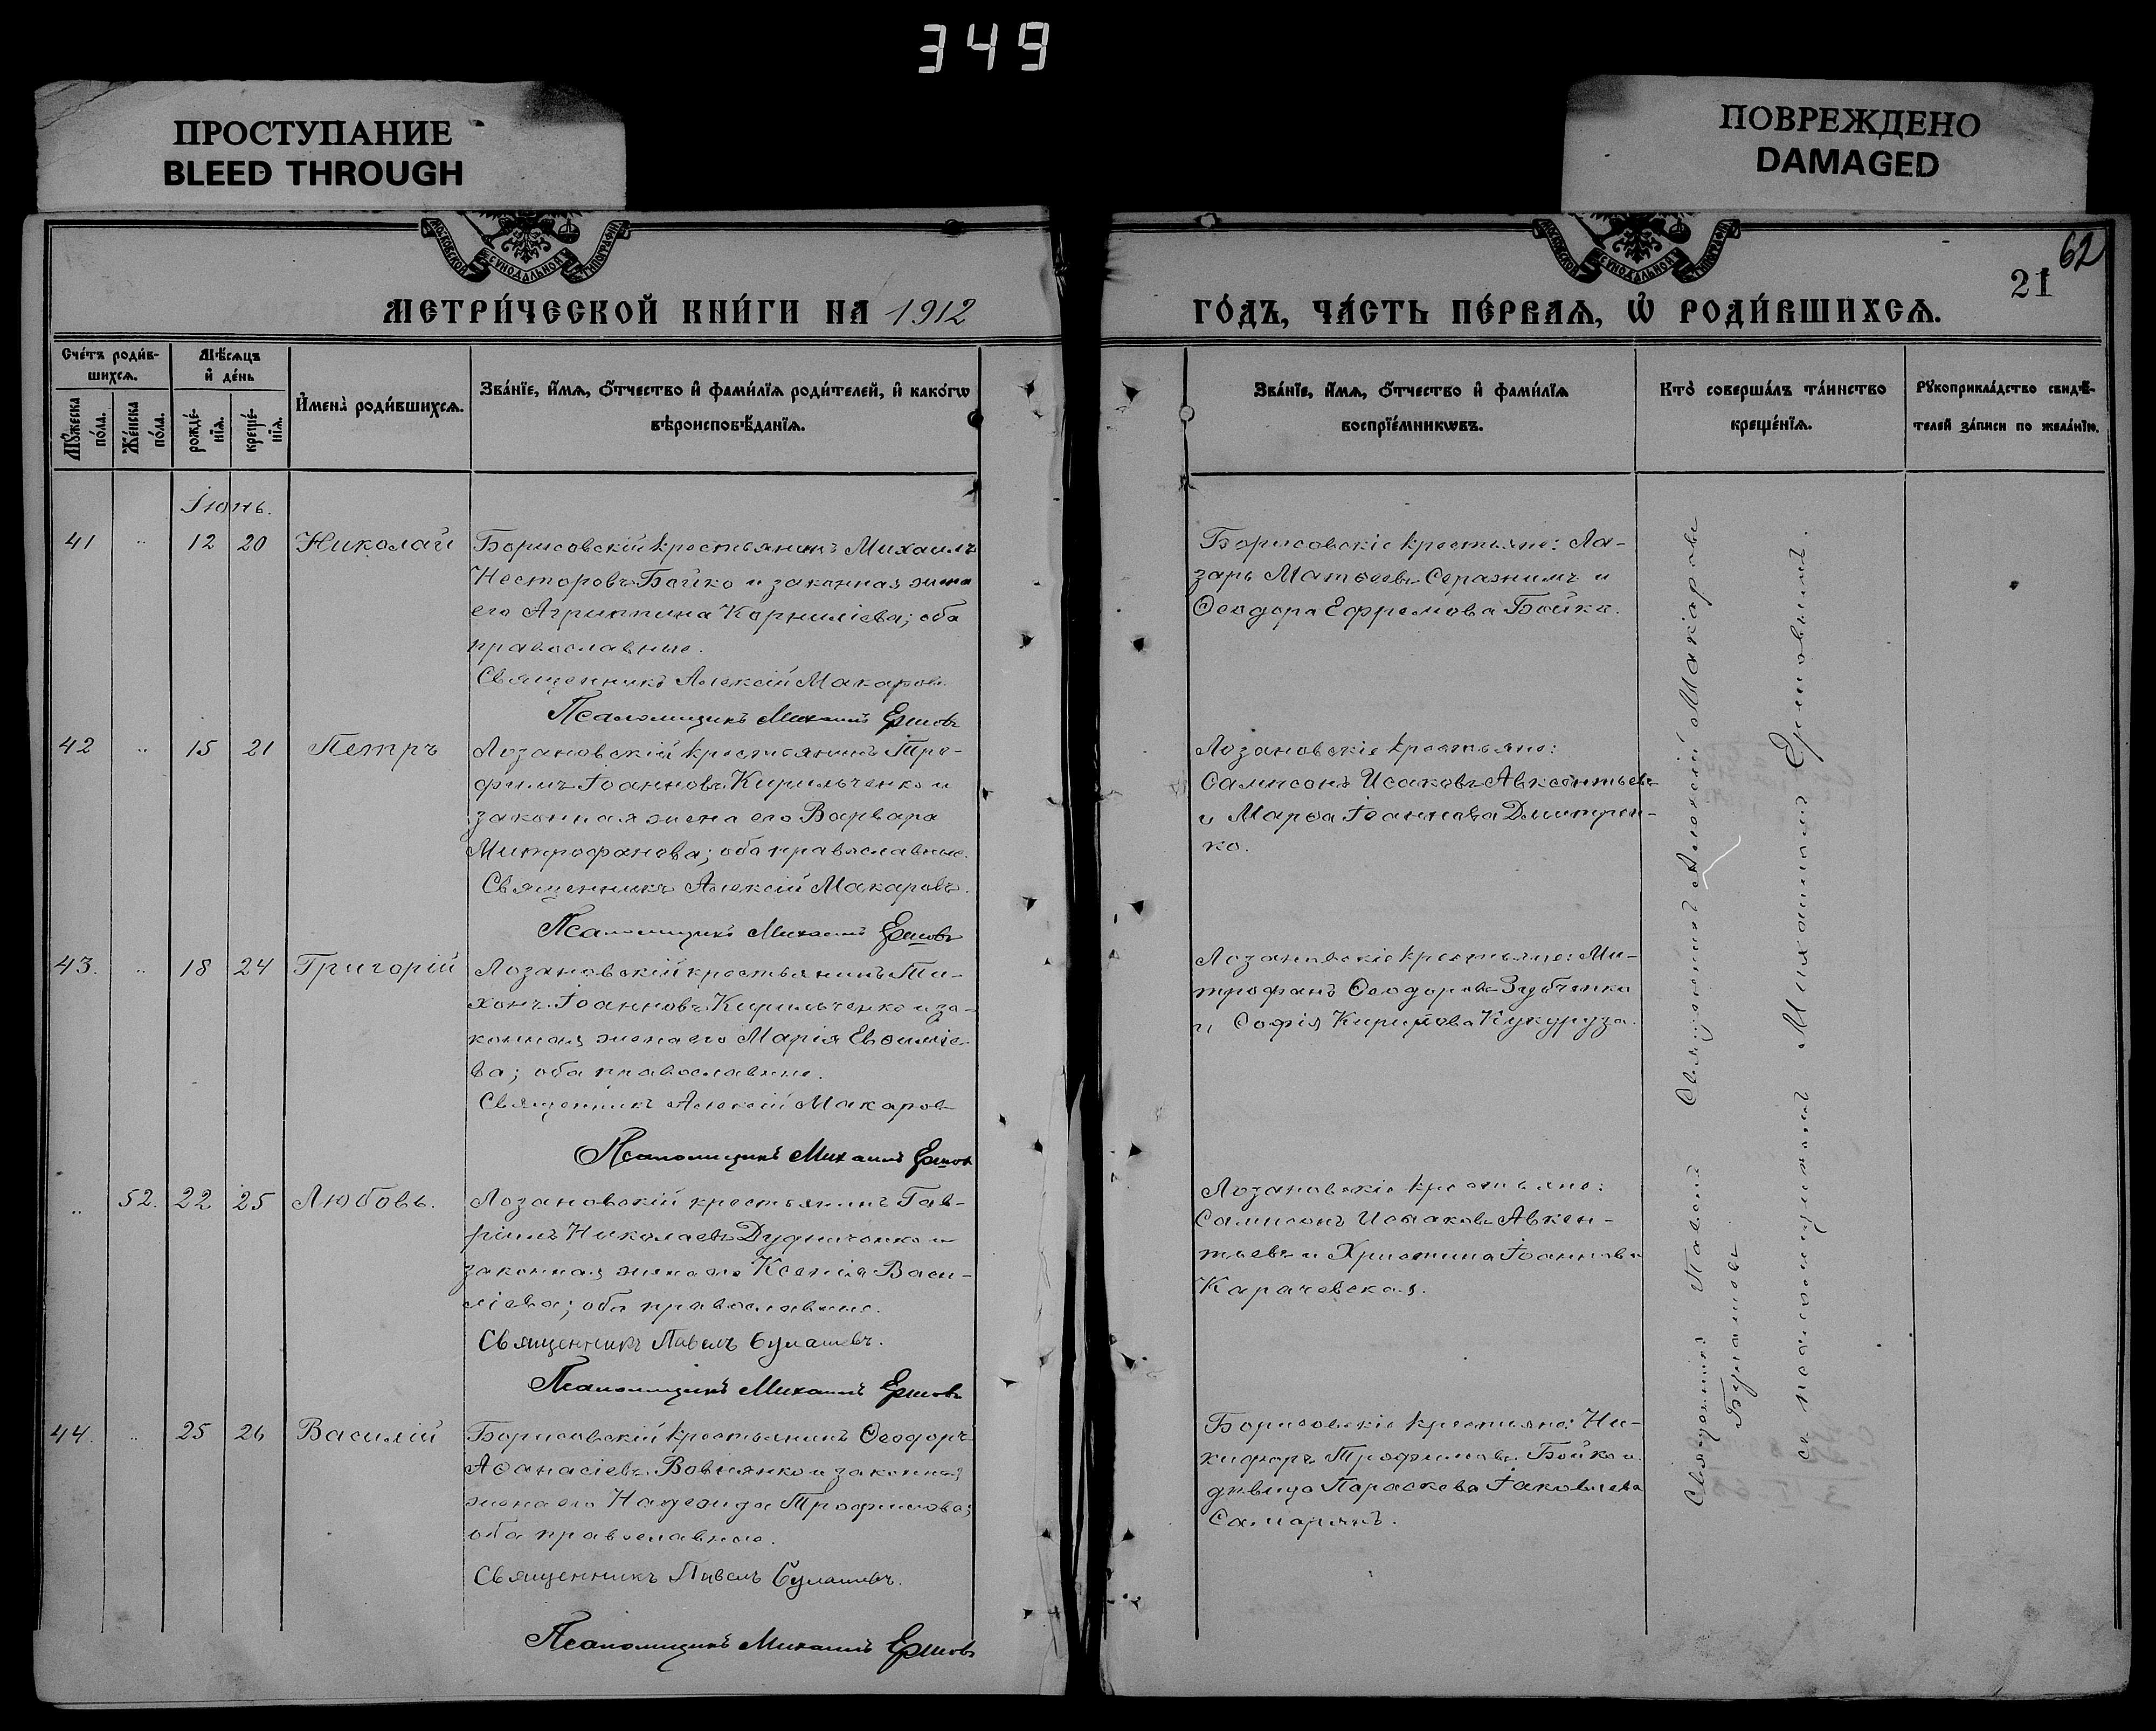 349
ПРОСТУПАНИЕ
BLEED THROUGH
ПОВРЕЖДЕНО
DAMAGED
МОСКОВСКОЙ СѴНОДАЛЬНОЙ ТИПОГРАФІИ
МОСКОВСКОЙ СѴНОДАЛЬНОЙ ТИПОГРАФІИ
62
21
МЕТРИ́ЧЕСКОЙ КНИ́ГИ НА 1912
ГО́ДЪ, ЧА́СТЬ ПЕ́РВАѦ, Ѡ҆ РОДИ́ВШИХСѦ.
Сче́тъ роди́в-
шихсѧ.
Мꙋ́жеска по́ла.
Же́нска по́ла.
Мѣ́сѧцъ
и҆ де́нь
рожде́-
нїѧ.
креще́-
нїѧ.
И҆мена̀ роди́вшихсѧ.
Зва́нїе, и҆́мѧ, ѻ҆́тчество и҆ фами́лїѧ роди́телей, и҆ како́гѡ
вѣроисповѣ́данїѧ.
Зва́нїе, и҆́мѧ, ѻ҆́тчество и҆ фами́лїѧ
воспрїе́мникѡвъ.
Кто̀ соверша́лъ та́инство
креще́нїѧ.
Рꙋкоприкла́дство свидѣ́-
телей за́писи по жела́нїю.
Іюнь.
41 " 12 20 Николай
Борисовскій крестьянинъ Михаилъ
Несторовъ Бойко и законная жена
его Агриппина Корниліева; оба
православные.
Священникъ Алексій Макаровъ
Псаломщикъ Михаилъ Ершовъ
Борисовскіе крестьяне: Ла-
зарь Матѳеевъ Серажимъ и
Ѳеодора Ефремова Бойко.
42 " 15 21 Петръ
Лозановскій крестьянинъ Тро-
фимъ Іоанновъ Кирильченко и
законная жена его Варвара
Митрофанова; оба православные.
Священникъ Алексій Макаровъ.
Псаломщикъ Михаилъ Ершовъ
Лозановскіе крестьяне:
Сампсонъ Исаковъ Авксентьевъ
и Марѳа Іоаннова Дмитрен-
ко.
43. " 18 24 Григорій
Лозановскій крестьянинъ Ти-
хонъ Іоанновъ Кирильченко и за-
конная жена его Марія Евѳиміе-
ва; оба православные.
Священникъ Алексій Макаровъ
Псаломщикъ Михаилъ Ершовъ
Лозановскіе крестьяне: Ми-
трофанъ Ѳеодоровъ Зубченко
и Софія Кирилова Кукуруза.
" 52. 22 25 Любовь.
Лозановскій крестьянинъ Гав-
ріилъ Николаевъ Дудниченко и
законная жена его Ксенія Васи-
ліева; оба православные.
Священникъ Павелъ Булашевъ.
Псаломщикъ Михаилъ Ершовъ
Лозановскіе крестьяне:
Сампсонъ Исааковъ Авксен-
тьевъ и Христина Іоаннова
Карачевская.
44. " 25 26 Василій
Борисовскій крестьянинъ Ѳеодоръ
Аѳанасіевъ Вовнянко и законная
жена его Надежда Трофимова;
оба православные.
Священникъ Павелъ Булашевъ.
Псаломщикъ Михаилъ Ершовъ
Борисовскіе крестьяне: Ни-
кифоръ Трофимовъ Бойко и
дѣвица Параскева Іаковлева
Самарянъ.
Священникъ Алексій Макаровъ
Священникъ Павелъ
Булашевъ
съ псаломщикомъ Михаиломъ Ершовымъ.